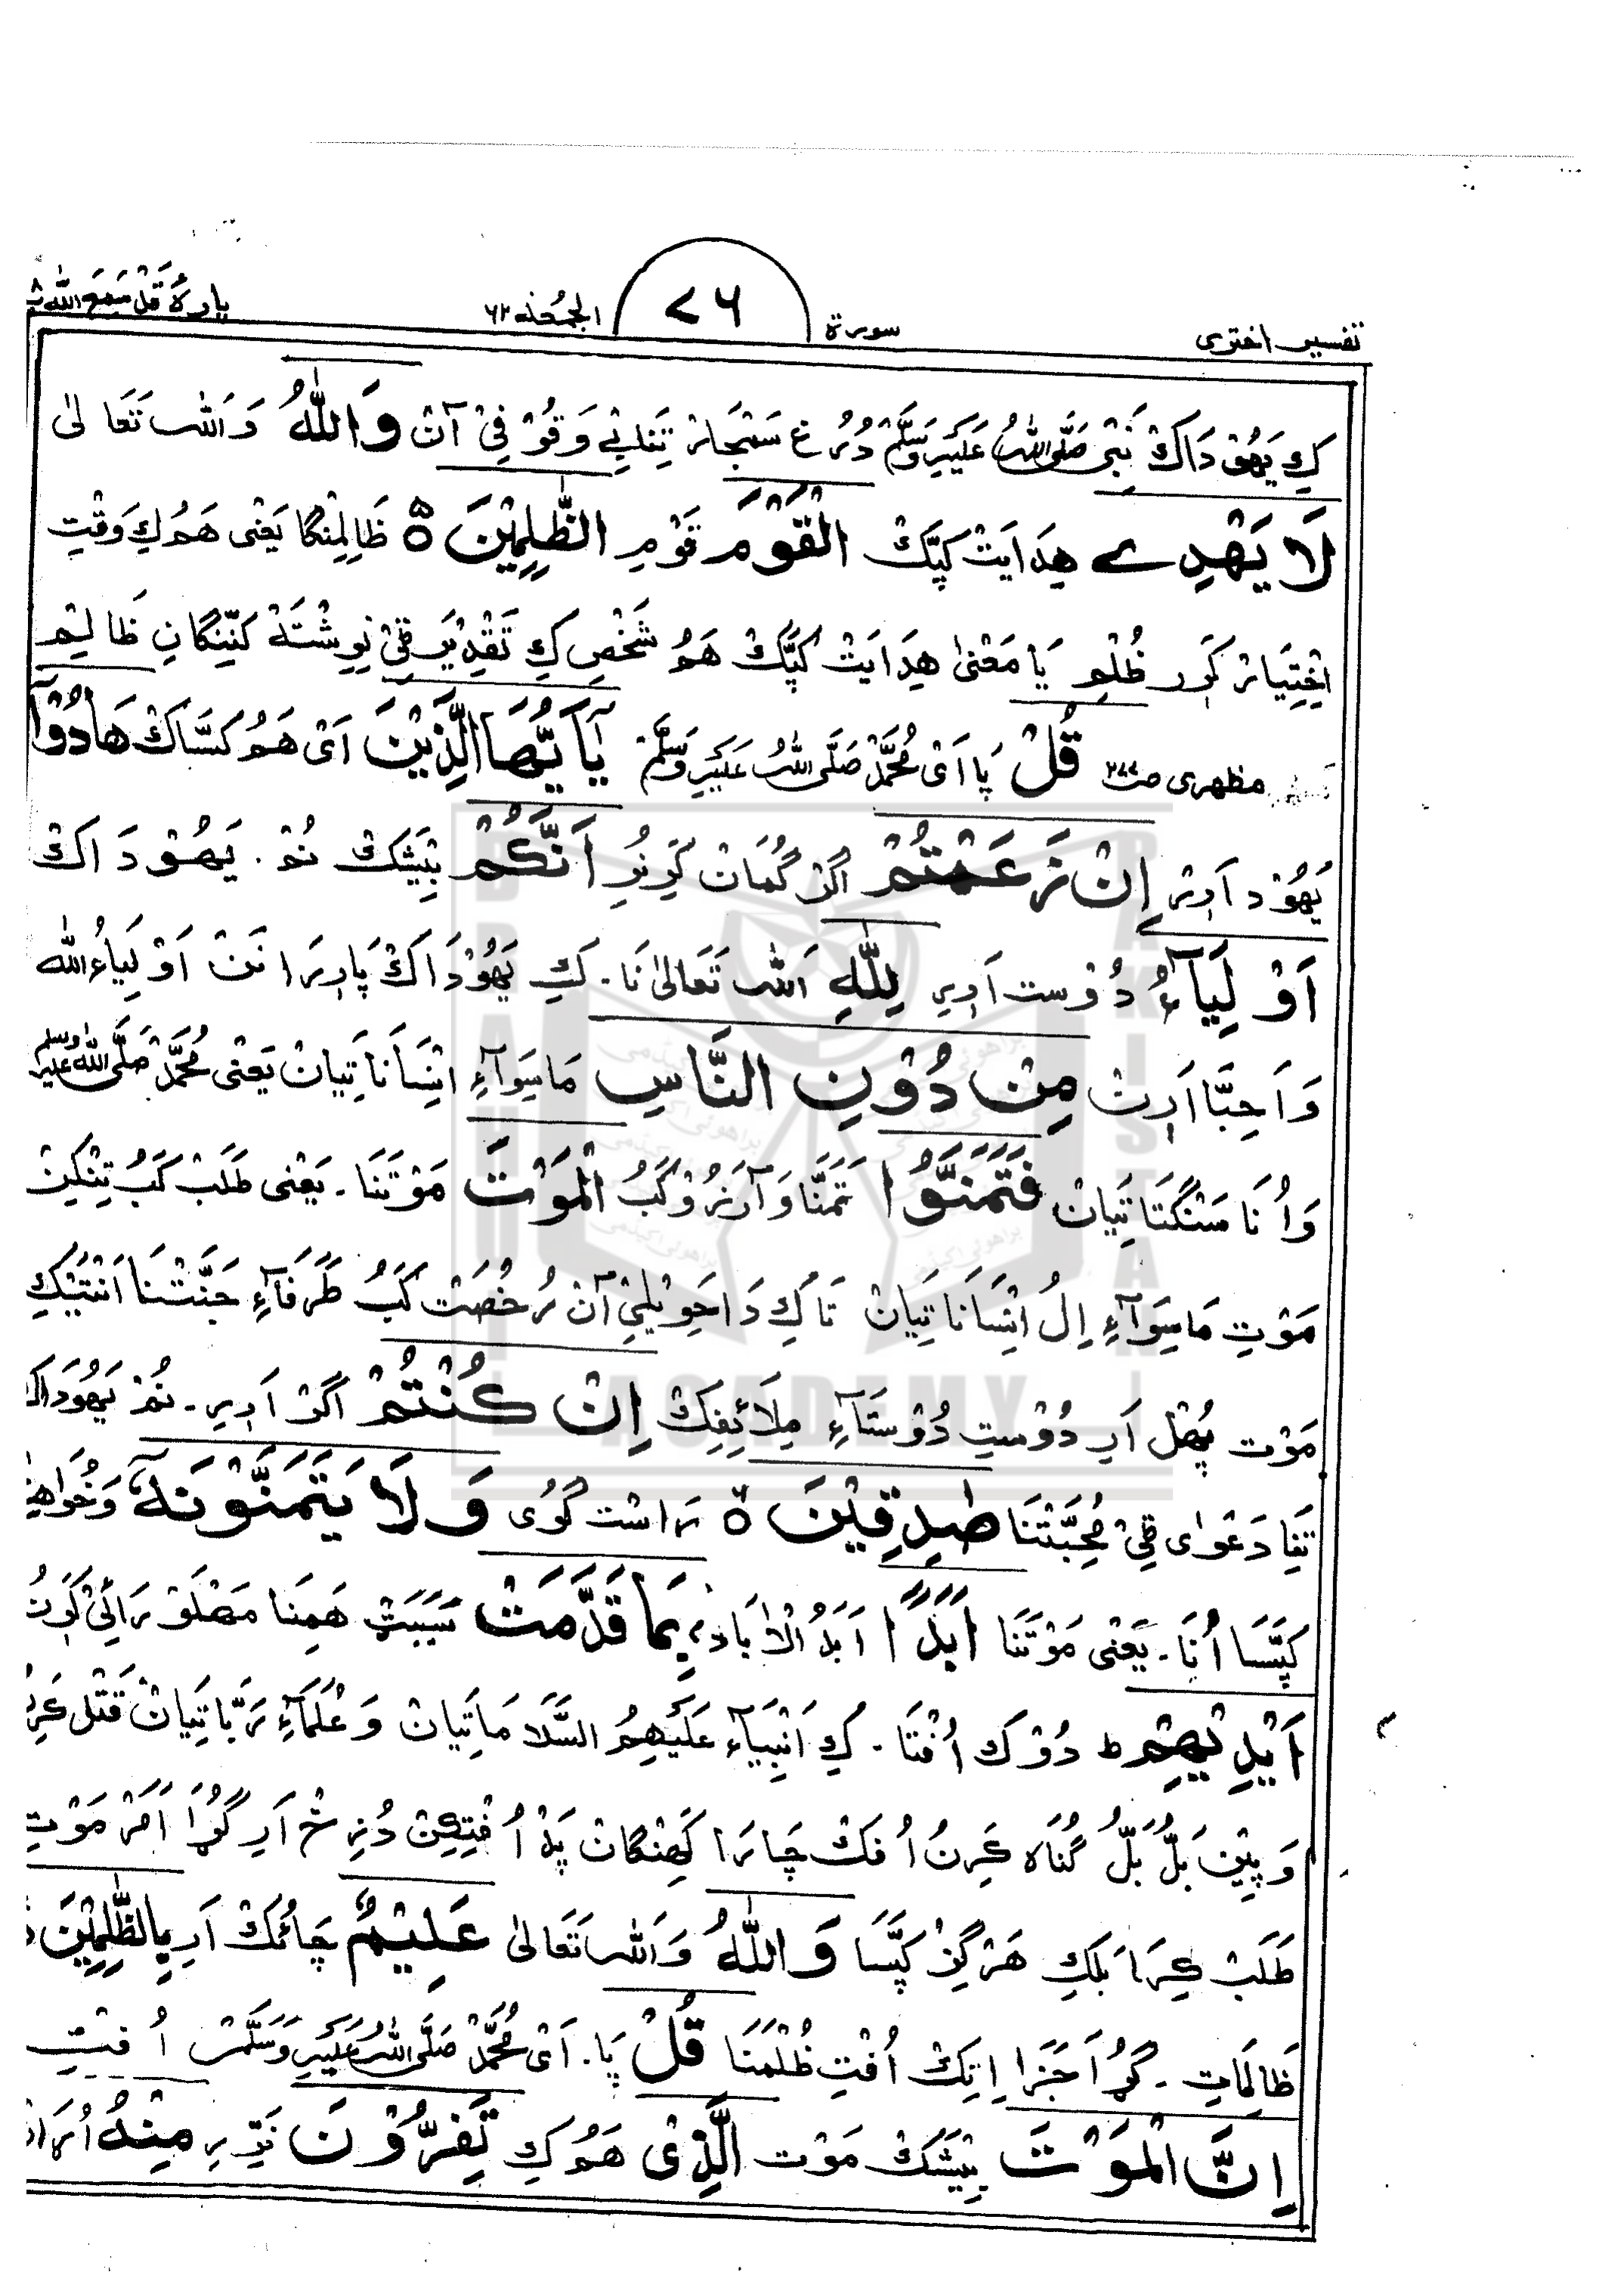 تفسیر اختری سورة ٧٦ الجمعة ٦٢ پارۂ قَدْ سَمِعَ اللّٰهُ
کِ یَهُوْدَاکْ نَبِّی صَلَّی اللهُ عَلَیْهِ وَسَلَّمْ دُرُغ سَنْجَارْ تِنِیْ وَقُوْفِیْ آنْ وَاللّٰهُ وَاَللّٰه تَعَالیٰ
لَا یَهْدِی هِدَایَتْ کَپَّکْ الْقَوْمَ قَوْمِ الظّٰلِمِیْنَ ٥ ظَالِمِنْگَا یَعْنِی هَمُ کِ وَقْتِ
اِخْتِیَارْ کَرِر ظُلْمِ یَا مَعْنیٰ هِدَایَتْ کَپَّکْ هَمُ شَخْصِ کِ تَقْدِیْرِ قِیْ نِوِشْتَهْ کَنِّنْگَانِ ظَالِم
مظهری صـ٢٧٧ قُلْ پَا اَیْ مُحَمَّدْ صَلَّی اللهُ عَلَیْهِ وَسَلَّمْ یٰۤاَیُّهَا الَّذِیْنَ اَیْ هَمُ کَسَّاکْ هَادُوْۤا
یَهُوْد اَرِرْ اِنْ زَعَمْتُمْ اَگَرْ گُمَانْ کَرِنُرِ اَنَّکُمْ بِیْشَکْ نُمْ . یَهُوْدَاکْ
اَوْلِیَآءُ دُوْست اَرِرِ لِلّٰهِ اَللّٰه تَعَالیٰ نَا . کِ یَهُوْدَاکْ پَارِرَا نَنْ اَوْلِیَاءُ اللّٰه
وَاَحِبَّا اَرِنْ مِنْ دُوْنِ النَّاسِ مَاسِوَآءِ اِنْسَانَاتِیَانْ یَعْنِی مُحَمَّدْ صَلَّی اللهُ عَلَیْهِ وَسَلَّمْ
وَاُنَا سَنْگَتَاتِیَانْ فَتَمَنَّوُا تَمَنَّا وَآرْزُوْ کَبُ الْمَوْتَ مَوْتَنَا - یَعْنِی طَلَبْ کَبُ تِنْکِنْ
مَوْتِ مَاسِوَآءِ اِلُ اِنْسَانَاتِیَانْ تَاکِ دَا حَوِیْلِیْ آنْ رُخْصَتْ کَبُ طَرَفَآءِ جَنَّتْنَا اَنْتَیْکِ
مَوْت پُهْل اَرِ دُوْستِ دُوْسْتَآءِ مِلَائِفِکْ اِنْ کُنْتُمْ اَگَرْ اَرِرِ - نُمْ یَهُوْدَاک
تَنِا دَعْوٰی قِیْ مُحِبَّتْنَا صٰدِقِیْنَ ٥ رَاسْت گَوْی وَلَا یَتَمَنَّوْنَهٗۤ وَخُوَاهِشْ
کَپَّسَا اُنَا - یَعْنِی مَوْتَنَا اَبَدًا اَبَدُ الْاٰبَادِ بِمَا قَدَّمَتْ سَبَبَتْ هَمِنَا مُهْلَوْ رَائِیْ کَرِنُ
اَیْدِیْهِمْ ط دُوْک اُفْتَا . کِ اَنْبِیَآء عَلَیْهِمُ السَّلَامَاتِیَانْ وَعُلَمَآءِ رَبَّاتِیَانْ قَتْل کَرِ
وَپِیْنَ بَلُّ بَلُّ گُنَاه کَرِنُ اُفَکْ چَارَا کَهِنْگَانْ پَدْ اُفْتِکِنْ دُزِخْ اَرِ گُڑَا اَمَرْ مَوْتِ
طَلَبْ کِرَا بَلکِ هَرْگِزْ کَپَّسَا وَاللّٰهُ وَاَللّٰه تَعَالیٰ عَلِیْمٌۢ چَائکْ اَرِ بِالظّٰلِمِیْنَ
ظَالِمَاتِ - گُڑَا جَزَا اِتِکْ اُفْتِ ظُلْمَنَا قُلْ پَا . اَیْ مُحَمَّدْ صَلَّی اللهُ عَلَیْهِ وَسَلَّمْ اُفْتِ
اِنَّ الْمَوْتَ بِیْشَکْ مَوْت الَّذِیْ هَمُ کِ تَفِرُّوْنَ نَرِّرِ مِنْهُ اُرَانْ